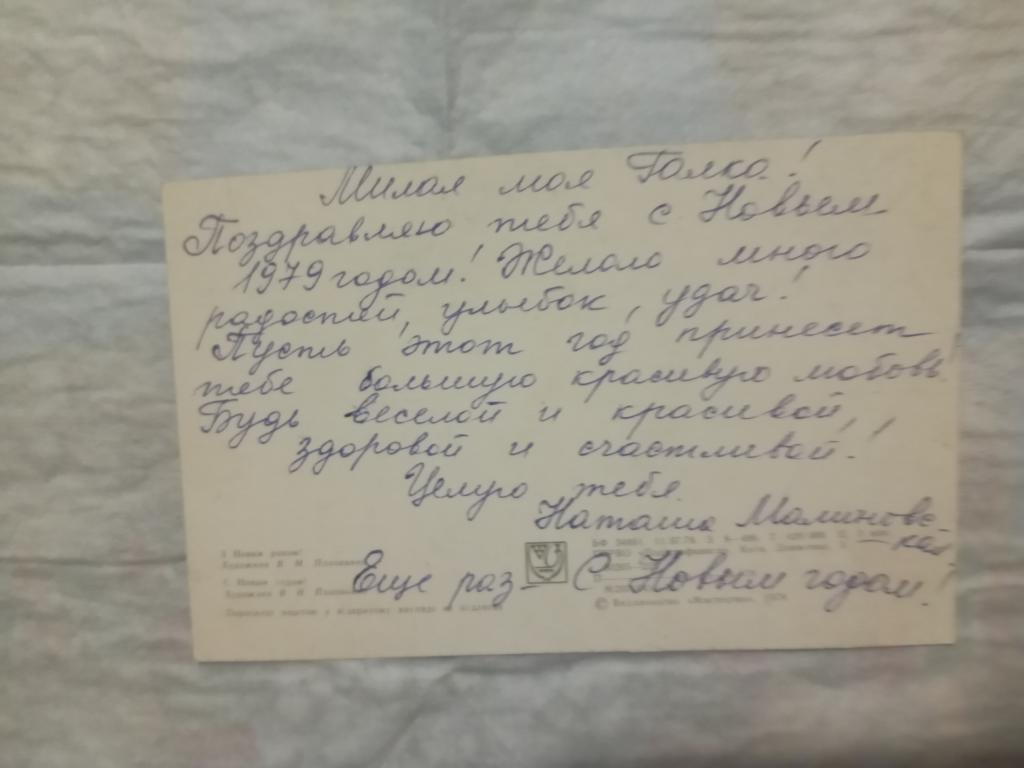 Милая моя Галка!
Поздравляю тебя с Новым
1979 годом! Желаю много
радостей, улыбок, удач!
Пусть этот год принесет
тебе большую красивую любовь.
Будь веселой и красивой,
здоровой и счастливой!
Целую тебя.
Наташа Малиновс-
кая
Еще раз - С Новым годом!
З Новим роком!
Художник
С Новым годом!
Художник